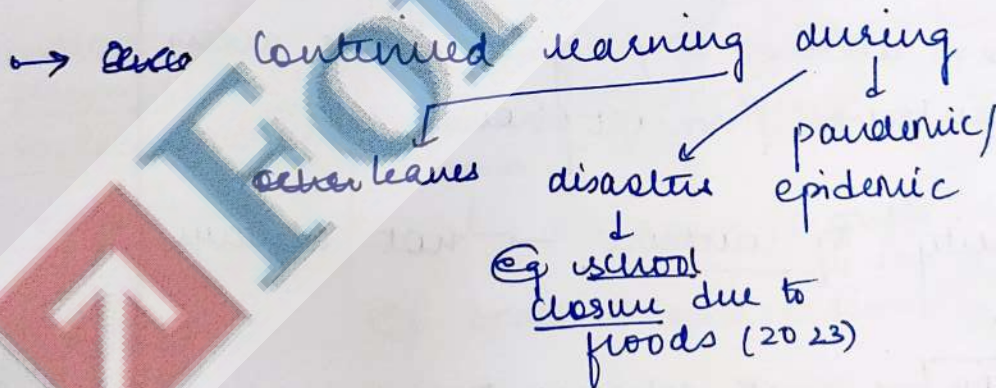 → Continued learning during
other leaves disaster pandemic/
epidemic
Eg school
closure due to
floods (2023)
For